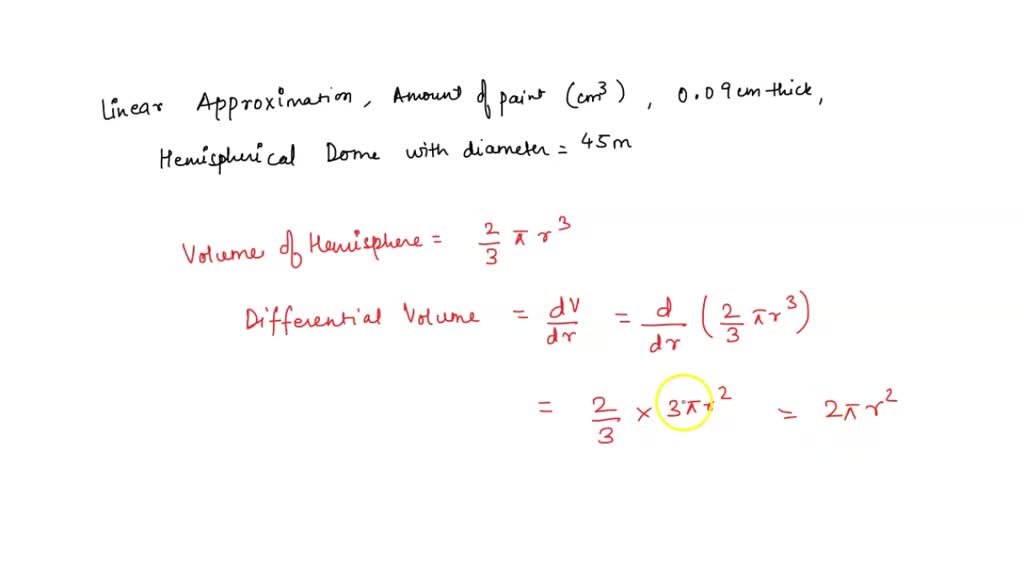 Linear Approximation, Amount of paint (cm³), 0.09 cm thick,
Hemispherical Dome with diameter = 45m
Volume of Hemisphere = 2/3 π r³
Differential Volume = dV/dr = d/dr (2/3 π r³)
= 2/3 × 3πr² = 2πr²